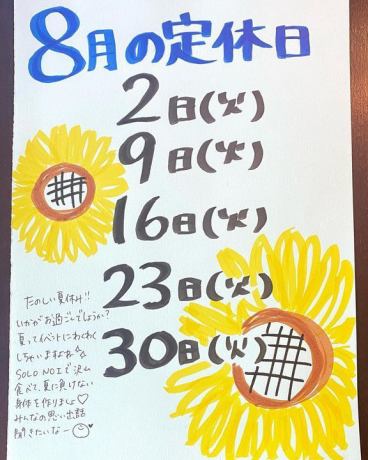 8月の定休日
2日(火)
9日(火)
16日(火)
23日(火)
30日(火)
たのしい夏休み!!
いかがお過ごしでしょうか?
夏ってイベントにわくわく
しちゃいますよね
SOLO NOIで沢山
食べて、夏に負けない
身体を作りましょ♡
みんなの思い出話
聞きたいなー